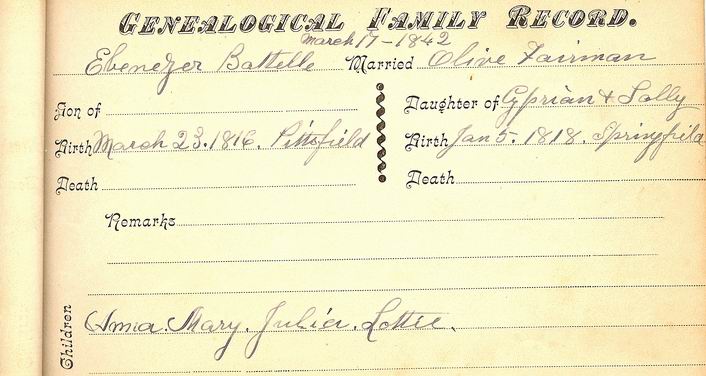 GENEALOGICAL FAMILY RECORD.
March 17-1842
Ebenezer Battelle Married Olive Fairman
Son of Daughter of Cyprian & Sally
Birth March 23. 1816. Pittsfield Birth Jan 5. 1818. Springfield
Death Death
Remarks
Children Anna. Mary. Julia. Lottie.